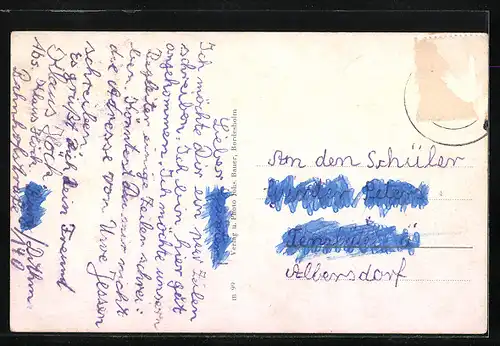 Lieber
Ich möchte Dir ein par Zeilen
schreiben. Ich bin hier gut
angekommen. Ich möchte unserm
Begleiter einige Zeilen schrei-
ben. Könntest Du mir nicht
die Adresse von Uwe Jessen
schreiben.
Es grüßt dich dein Freund
Klaus
Abs. Klaus
Bahnhofstraße
Verlag u. Photo Bauer, Bordesholm
m 99
An den Schüler
Albersdorf